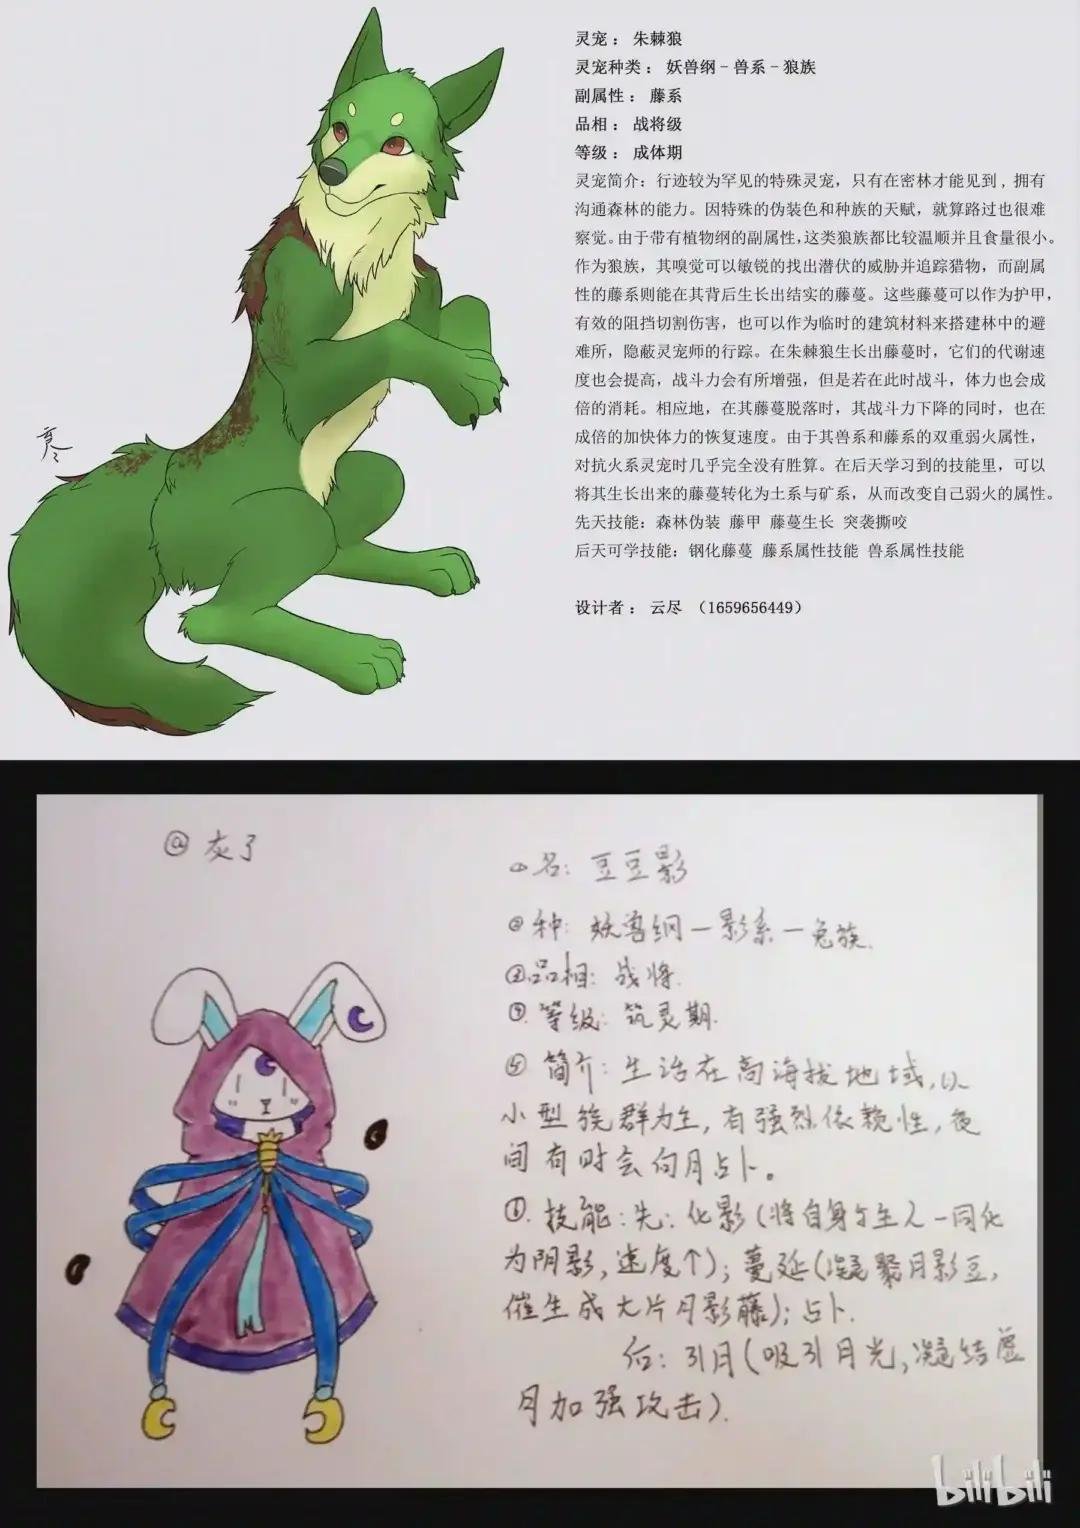 灵宠： 朱棘狼
灵宠种类： 妖兽纲-兽系-狼族
副属性： 藤系
品相： 战将级
等级： 成体期
灵宠简介：行迹较为罕见的特殊灵宠，只有在密林才能见到，拥有
沟通森林的能力。因特殊的伪装色和种族的天赋，就算路过也很难
察觉。由于带有植物纲的副属性，这类狼族都比较温顺并且食量很小。
作为狼族，其嗅觉可以敏锐的找出潜伏的威胁并追踪猎物，而副属
性的藤系则能在其背后生长出结实的藤蔓。这些藤蔓可以作为护甲，
有效的阻挡切割伤害，也可以作为临时的建筑材料来搭建林中的避
难所，隐蔽灵宠师的行踪。在朱棘狼生长出藤蔓时，它们的代谢速
度也会提高，战斗力会有所增强，但是若在此时战斗，体力也会成
倍的消耗。相应地，在其藤蔓脱落时，其战斗力下降的同时，也在
成倍的加快体力的恢复速度。由于其兽系和藤系的双重弱火属性，
对抗火系灵宠时几乎完全没有胜算。在后天学习到的技能里，可以
将其生长出来的藤蔓转化为土系与矿系，从而改变自己弱火的属性。
先天技能：森林伪装 藤甲 藤蔓生长 突袭撕咬
后天可学技能：钢化藤蔓 藤系属性技能 兽系属性技能
设计者： 云尽 （1659656449）
@ 灰了
①名：豆豆影
②种：妖兽纲－影系－兔族.
③品相：战将.
④等级：筑灵期.
⑤ 简介：生活在高海拔地域，以
小型族群为主，有强烈依赖性，夜
间有时会向月占卜。
⑥. 技能：先：化影(将自身与主人一同化
为阴影，速度个)；蔓延(凝聚月影豆，
催生成大片月影藤)；占卜.
后：引月(吸引月光，凝结虚
月加强攻击).
bilibili